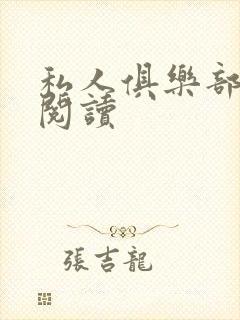 私人俱樂部
閱讀
張吉龍